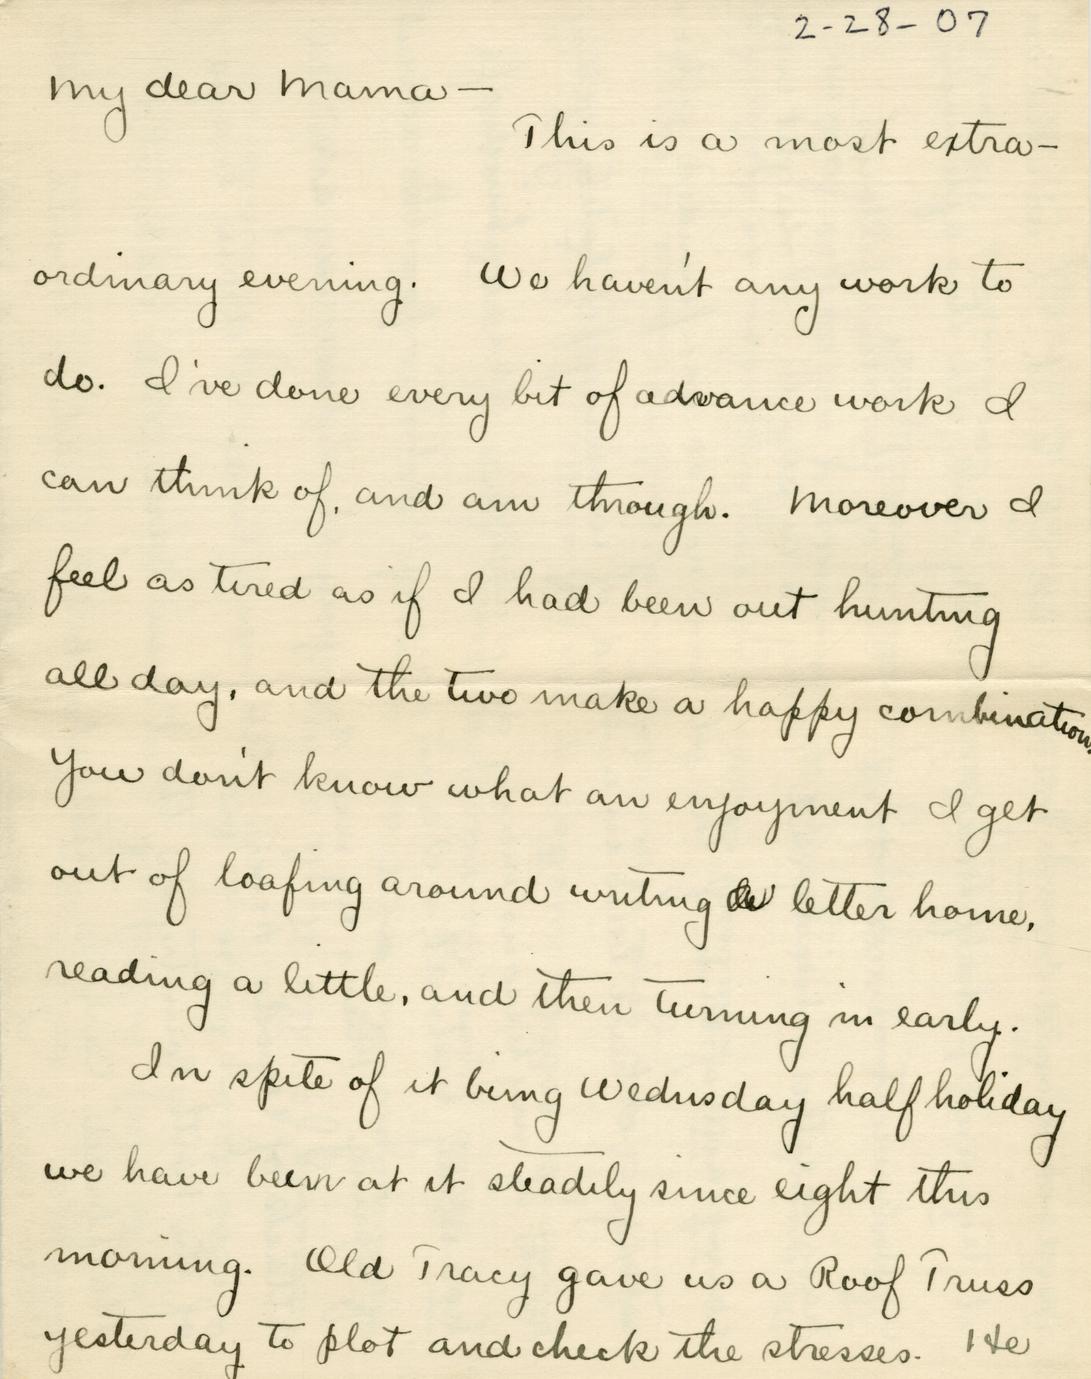 2-28-07
My dear Mama—
This is a most extra-
ordinary evening. We haven't any work to
do. I've done every bit of advance work I
can think of, and am through. Moreover I
feel as tired as if I had been out hunting
all day, and the two make a happy combination.
You don't know what an enjoyment I get
out of loafing around writing a letter home,
reading a little, and then turning in early.
In spite of it being Wednesday half holiday
we have been at it steadily since eight this
morning. Old Tracy gave us a Roof Truss
yesterday to plot and check the stresses. He